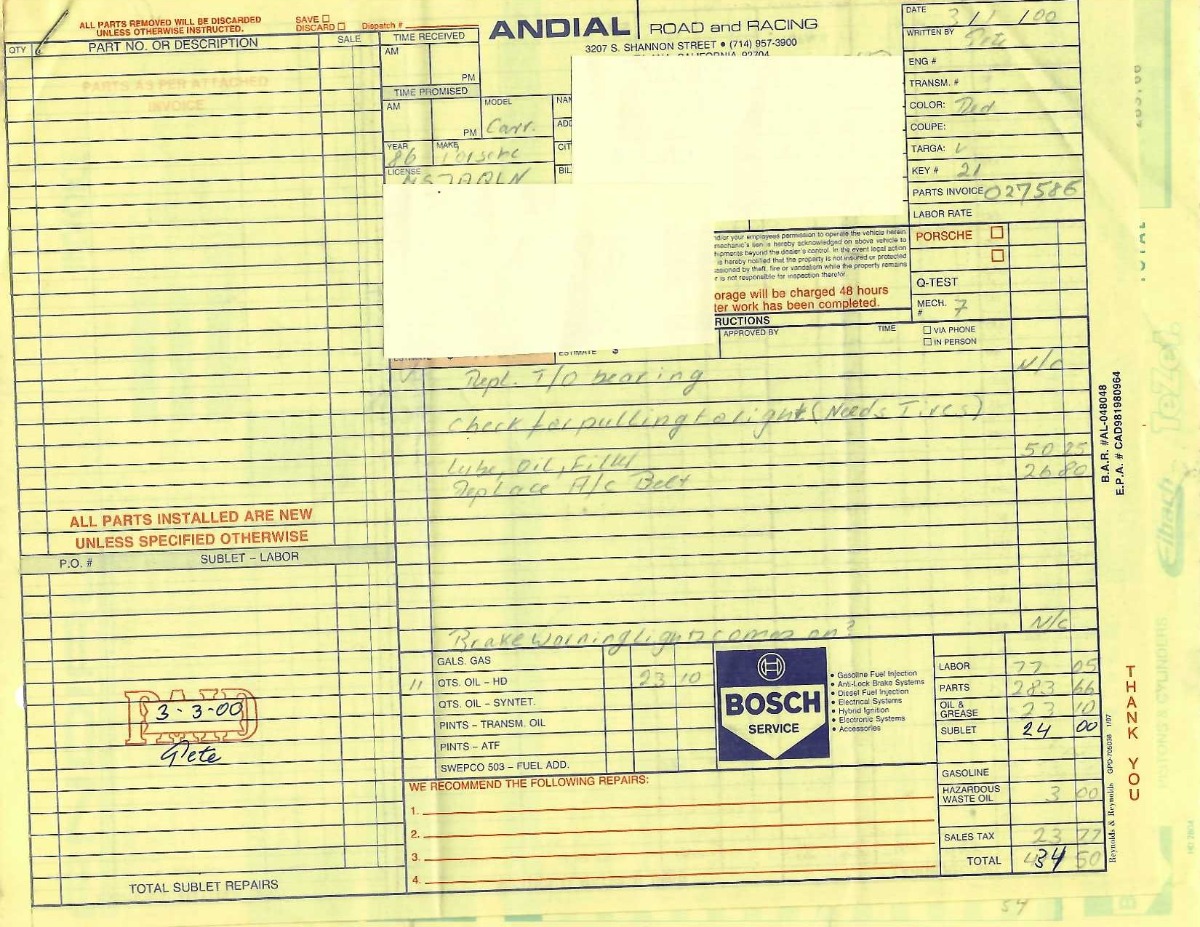 ALL PARTS REMOVED WILL BE DISCARDED
UNLESS OTHERWISE INSTRUCTED.
SAVE ☐
DISCARD ☐
Dispatch #
QTY
PART NO. OR DESCRIPTION
SALE
PARTS AS PER ATTACHED
INVOICE
ALL PARTS INSTALLED ARE NEW
UNLESS SPECIFIED OTHERWISE
P.O. #
SUBLET – LABOR
PAID
3-3-00
Pete
TOTAL SUBLET REPAIRS
TIME RECEIVED
AM
PM
TIME PROMISED
AM
PM
MODEL
Carr.
YEAR
86
MAKE
Porsche
LICENSE
ANDIAL
ROAD and RACING
3207 S. SHANNON STREET • (714) 957-3900
DATE 3/1/00
WRITTEN BY Pete
ENG #
TRANSM. #
COLOR: Red
COUPE:
TARGA: ✓
KEY # 21
PARTS INVOICE 027586
LABOR RATE
PORSCHE ☐
☐
Q-TEST
MECH. # 7
nd/or your employees permission to operate the vehicle herein
mechanic's lien is hereby acknowledged on above vehicle to
hipments beyond the dealer's control. In the event legal action
is hereby notified that the property is not insured or protected
asioned by theft, fire or vandalism while the property remains
r is not responsible for inspection therefor.
orage will be charged 48 hours
ter work has been completed.
RUCTIONS
APPROVED BY
TIME
☐ VIA PHONE
☐ IN PERSON
ESTIMATE $
Repl. T/O bearing N/C
Check for pulling to right (Needs Tires)
Lube, Oil, Filter 50 25
Replace A/C Belt 26 80
Brake warning light comes on? N/C
GALS. GAS
11 QTS. OIL – HD 23 10
QTS. OIL – SYNTET.
PINTS – TRANSM. OIL
PINTS – ATF
SWEPCO 503 – FUEL ADD.
BOSCH
SERVICE
• Gasoline Fuel Injection
• Anti-Lock Brake Systems
• Diesel Fuel Injection
• Electrical Systems
• Hybrid Ignition
• Electronic Systems
• Accessories
WE RECOMMEND THE FOLLOWING REPAIRS:
1.
2.
3.
4.
LABOR 77 05
PARTS 283 66
OIL & GREASE 23 10
SUBLET 24 00
GASOLINE
HAZARDOUS WASTE OIL 3 00
SALES TAX 23 77
TOTAL 434 50
B.A.R. #AL-048048
E.P.A. # CAD981980964
THANK YOU
Reynolds & Reynolds
TOTAL
Eibach
54